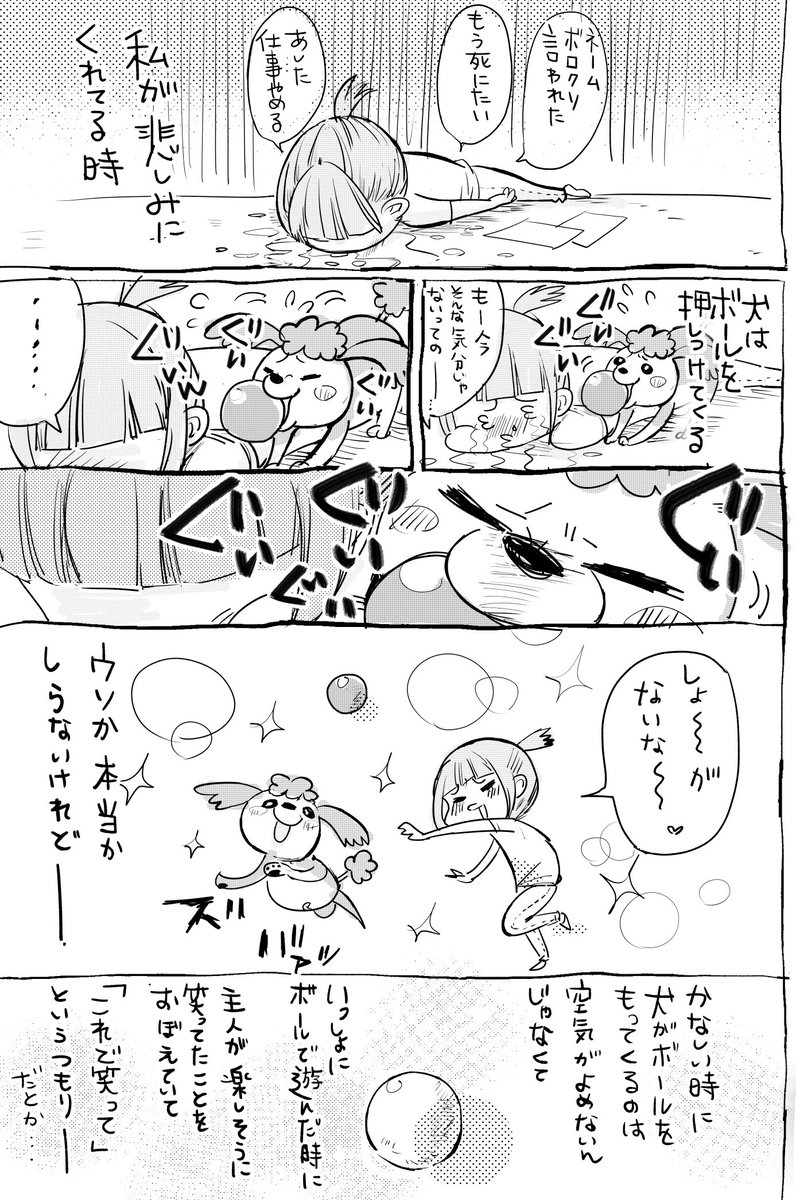 ネーム
ボロクソ
言われた
もう死にたい
あした
仕事やめる
私が悲しみに
くれてる時
犬は
ボールを
押しつけてくる
ぐいぐい
もー人ラ
そんな気分じゃ
ないっての――
ぐいぐい
ぐい
ぐいん
‥‥‥‥
ぐい
ぐい
ぐい
ぐい
しょ〜〜が
ないな〜〜♡
ズバァッ
ウソか本当か
しらないけれど――
かなしい時に
犬がボールを
もってくるのは
空気がよめないん
じゃなくて
いっしょに
ボールで遊んだ時に
主人が楽しそうに
笑ってたことを
おぼえていて
「これで笑って」
というつもり――
だとか‥‥